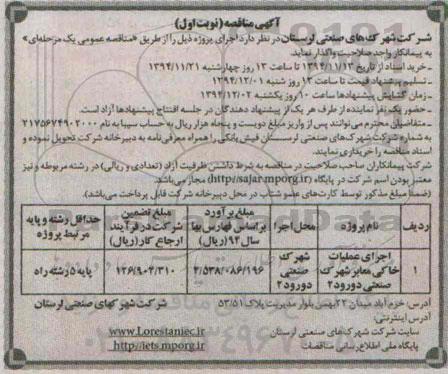 آگهی مناقصه (نوبت اول)
شرکت شهرک‌های صنعتی لرستان در نظر دارد اجرای پروژه ذیل را از طریق «مناقصه عمومی یک مرحله‌ای»
به پیمانکار واجد صلاحیت واگذار نماید.
-خرید اسناد از تاریخ ۱۳۹۴/۱۱/۱۳ تا ساعت ۱۳ روز چهارشنبه ۱۳۹۴/۱۱/۲۱
- تسلیم پیشنهاد قیمت تا ساعت ۱۳ روز شنبه ۱۳۹۴/۱۲/۰۱
- زمان گشایش پیشنهادها ساعت ۱۰ روز یکشنبه ۱۳۹۴/۱۲/۰۲
- حضور یک نفر نماینده از طرف هر یک از پیشنهاد دهندگان در جلسه افتتاح پیشنهادها آزاد است.
- متقاضیان محترم می‌توانند پس از واریز مبلغ دویست و پنجاه هزار ریال به حساب سیبا به نام ۲۱۷۵۶۷۴۹۰۲۰۰۰
به شماره شرکت شهرک‌های صنعتی لرستان فیش بانکی را همراه معرفی‌نامه به دبیرخانه شرکت تحویل نموده و
اسناد مناقصه را خریداری نمایند.
شرکت پیمانکاران صاحب صلاحیت در مناقصه به شرط داشتن ظرفیت آزاد (تعدادی و ریالی) در رشته مربوطه و نیز
معتبر بودن اسم شرکت در پایگاه (http//sajar.mporg.ir) مجاز می‌باشد.
(ضمناً مبلغ مذکور توسط کارت‌های عضو شتاب در محل دبیرخانه شرکت قابل پرداخت می‌باشد).
ردیف | نام پروژه | محل اجرا | مبلغ برآورد براساس فهارس بها سال ۹۴ (ریال) | مبلغ تضمین شرکت در فرآیند ارجاع کار (ریال) | حداقل رشته و پایه مرتبط پروژه
۱ | اجرای عملیات خاکی معابر شهرک صنعتی دورود۲ | شهرک صنعتی دورود۲ | ۲/۵۳۸/۰۸۶/۱۹۶ | ۱۲۶/۹۰۴/۳۱۰ | پایه ۵ رشته راه
آدرس: خرم آباد میدان ۲۲ بهمن بلوار مدیریت پلاک ۵۳/۵۱
شرکت شهرکهای صنعتی لرستان
آدرس اینترنتی:
سایت شرکت شهرک‌های صنعتی لرستان www.Lorestaniec.ir
پایگاه ملی اطلاع رسانی مناقصات http//iets.mporg.ir